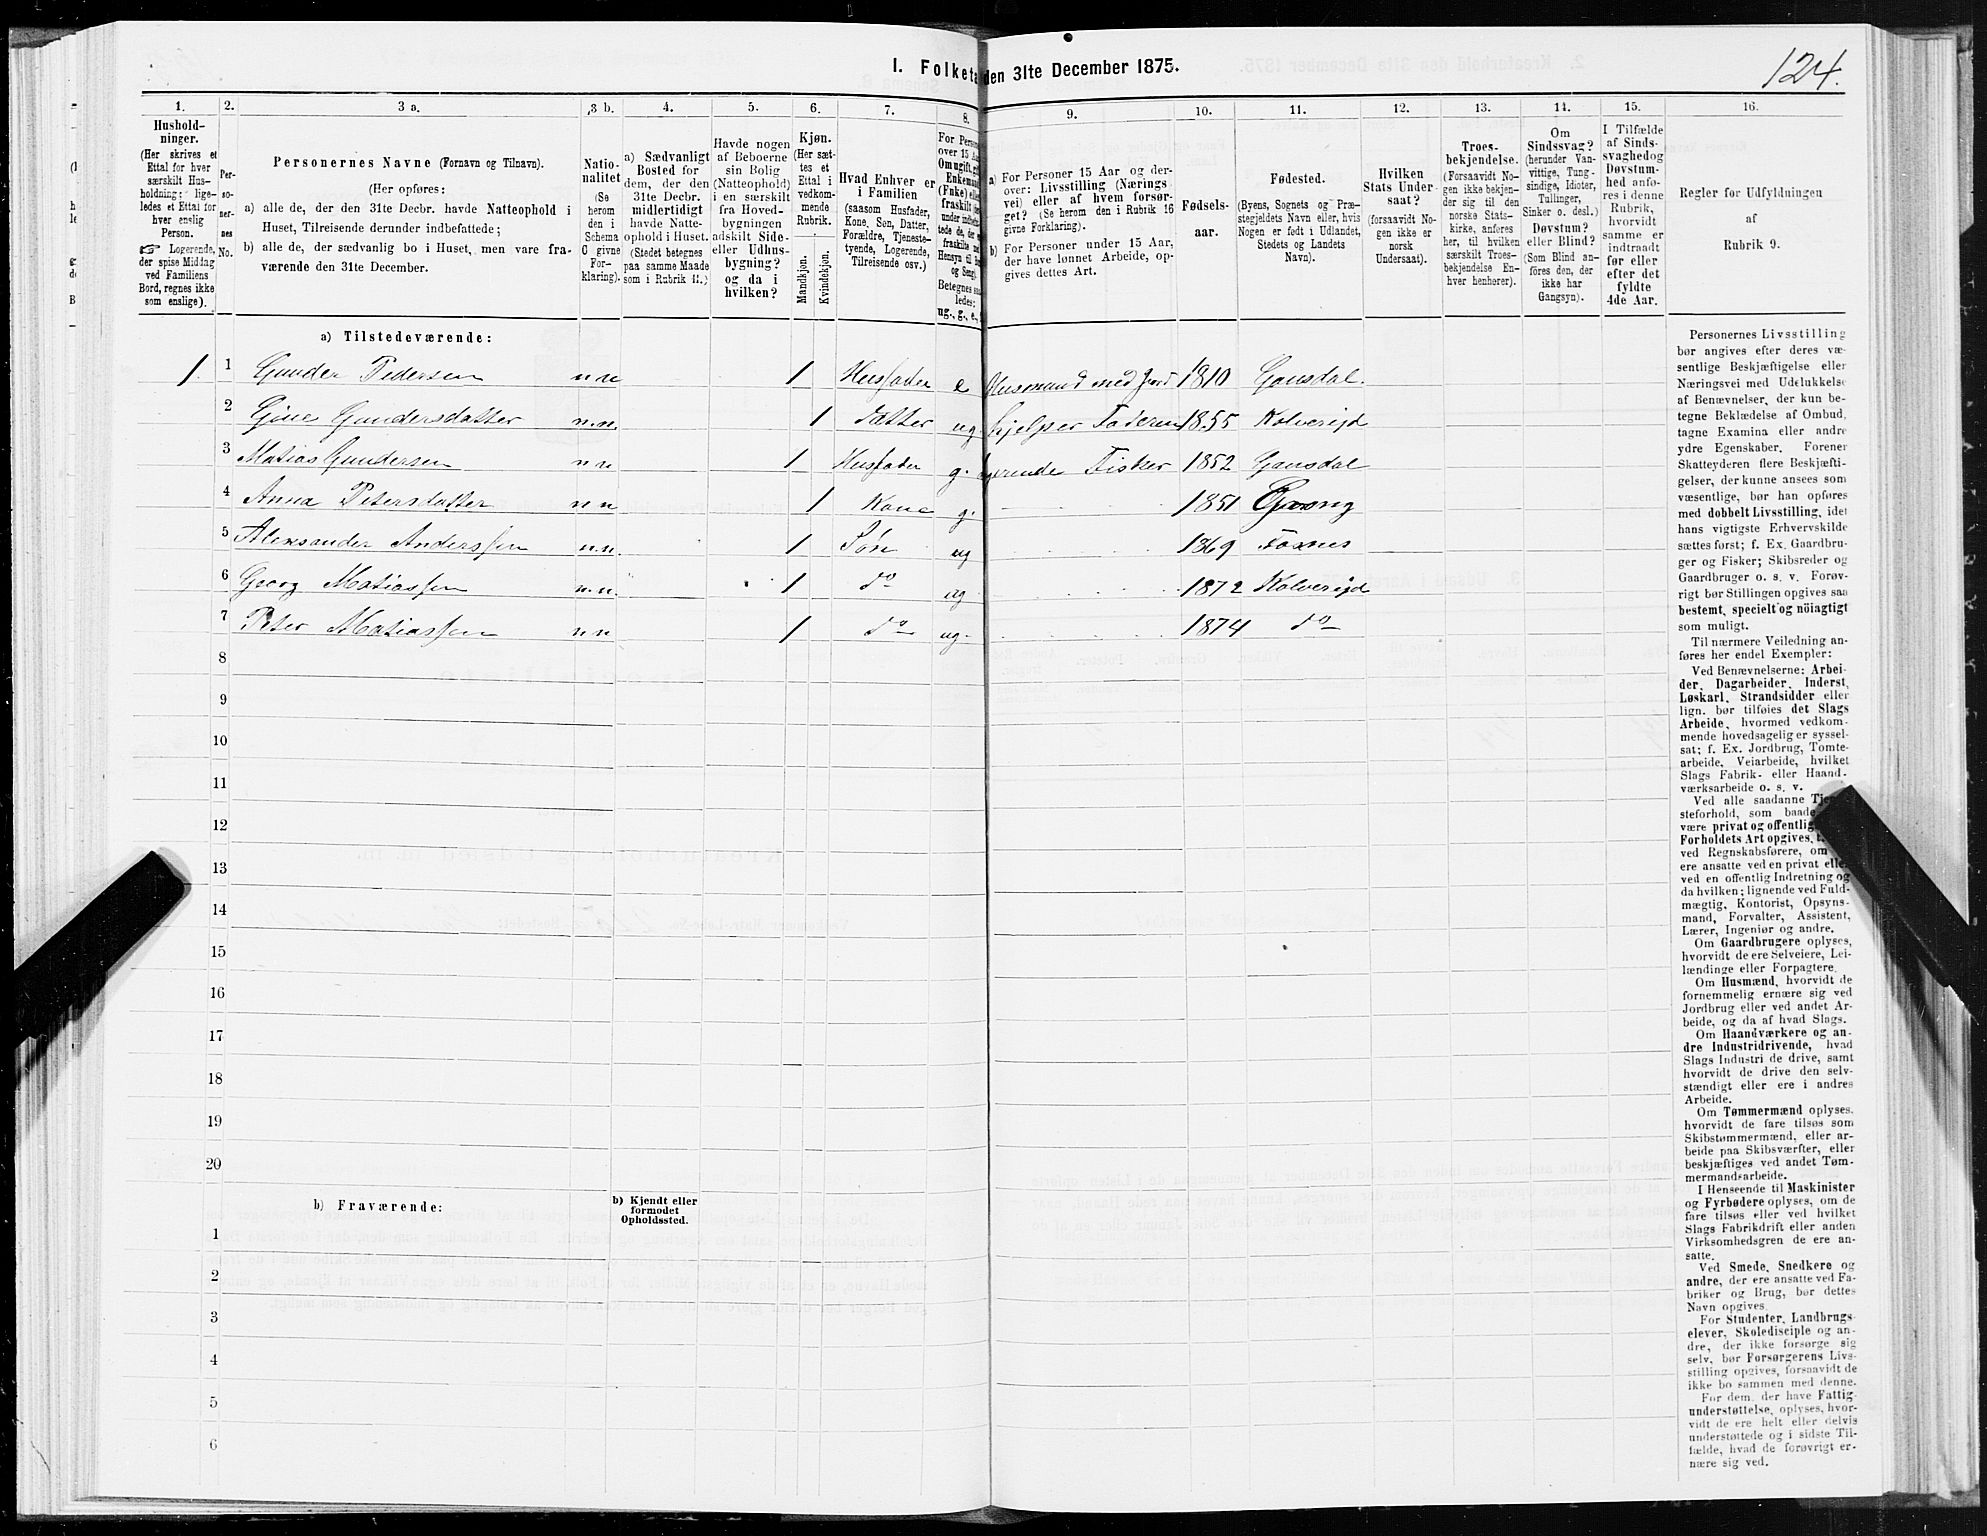 124.
I. Folketæ den 31te December 1875.
1. 2. 3 a. 3 b. 4. 5. 6. 7. 8. 9. 10. 11. 12. 13. 14. 15. 16.
Hushold-
ninger.
(Her skrives et
Ettal for hver
særskilt Hus-
holdning; lige-
ledes et Ettal for
hver enslig
Person.
☞ Logerende,
der spise Middag
ved Familiens
Bord, regnes ikke
som enslige).
Per-
so-
ner-
nes
No.
Personernes Navne (Fornavn og Tilnavn).
(Her opføres:
a) alle de, der den 31te Decbr. havde Natteophold i
Huset, Tilreisende derunder indbefattede;
b) alle de, der sædvanlig bo i Huset, men vare fra-
værende den 31te December.
Natio-
nalitet
(Se
herom
den i
Schema
6 givne
For-
klaring).
a) Sædvanligt
Bosted for
dem, der den
31te Decbr.
midlertidigt
havde Natte-
ophold i Huset.
(Stedet betegnes
paa samme Maade
som i Rubrik 11.)
Havde nogen
af Beboerne
sin Bolig
(Natteophold)
i en særskilt
fra Hoved-
bygningen
adskilt Side-
eller Udhus-
bygning?
og da i
hvilken?
Kjøn.
(Her sæt-
tes et
Ettal i
vedkom-
mende
Rubrik.
Mandkjøn.
Kvindekjøn.
Hvad Enhver er
i Familien
(saasom Husfader,
Kone, Søn, Datter,
Forældre, Tjeneste-
tyende, Logerende,
Tilreisende osv.)
For Person
over 15 Aa
Omugift, g
Enkeman
(Fnke) elle
fraskilt
under indbe
fraskilte
tede de, der
Hensyn til
og Seng)
Betegnes
ledes:
ug., g., e.,
a) For Personer 15 Aar og der-
over: Livsstilling (Nærings-
vei) eller af hvem forsør-
get? (Se herom den i Rubrik 16
givne Forklaring).
b) For Personer under 15 Aar,
der have lønnet Arbeide, op-
gives dettes Art.
Fødsels-
aar.
Fødested.
(Byens, Sognets og Præ-
stegjeldets Navn eller, hvis
Nogen er født i Udlandet,
Stedets og Landets
Navn).
Hvilken
Stats Under-
saat?
(forsaavidt No-
gen ikke er
norsk
Undersaat).
Troes-
bekjendelse.
(Forsaavidt No-
gen ikke bekjen-
der sig til den
norske Stats-
kirke, anføres
her, til hvilken
særskilt Troes-
bekjendelse En-
hver henhører).
Om
Sindssvag?
(herunder Van-
vittige, Tung-
sindige, Idioter,
Tullinger,
Sinker o. desl.)
Døvstum?
eller Blind?
(Som Blind an-
føres den, der
ikke har
Gangsyn).
I Tilfælde
af Sinds-
svaghed og
Døvstum-
hed anfø-
res i denne
Rubrik,
hvorvidt
samme er
indtraadt
før eller
efter det
fyldte
4de Aar.
Regler for Udfyldningen
af
Rubrik 9.
a) Tilstedeværende:
1. 1 Gunder Pedersen n.n 1 Husfader e Husmand med Jord 1810 Gansdal.
2 Gine Gundersdatter n.n. 1 datter ug. hjelper Faderen 1855 Kolvereid
3 Matias Gundersen n.n 1 Husfader g. Fisker 1852 Gansdal
4 Anna Petersdatter n.n 1 Kone g. 1851
5 Aleksander Anderssen n.n. 1 Søn ug 1869 Foxnes
6 Georg Matiassen n.n. 1 do ug 1872 Kolvereid
7 Peter Matiassen n.n 1 do ug. 1874 do
8
9
10
11
12
13
14
15
16
17
18
19
20
b) Fraværende:
b) Kjendt eller
formodet
Opholdssted.
1
2
3
4
5
6
Personernes Livsstilling
bør angives efter deres væ-
sentlige Beskjæftigelse eller
Næringsvei med Udelukkelse
af Benævnelser, der kun be-
tegne Beklædelse af Ombud,
tagne Examina eller andre
ydre Egenskaber. Forener
Skatteyderen flere Beskjæfti-
gelser, der kunne ansees som
væsentlige, bør han opføres
med dobbelt Livsstilling, idet
hans vigtigste Erhvervskilde
sættes først; f. Ex. Gaardbru-
ger og Fisker; Skibsreder og
Gaardbruger o. s. v. Forøv-
rigt bør Stillingen opgives saa
bestemt, specielt og nöiagtigt
som muligt.
Til nærmere Veiledning an-
føres her endel Exempler:
Ved Benævnelserne: Arbei-
der, Dagarbeider, Inderst,
Løskarl, Strandsidder eller
lign. bør tilføies det Slags
Arbeide, hvormed vedkom-
mende hovedsagelig er syssel-
sat; f. Ex. Jordbrug, Tomte-
arbeide, Veiarbeide, hvilket
Slags Fabrik- eller Haand-
værksarbeide o. s. v.
Ved alle saadanne Tje
steforhold, som baade
være privat og offentlig
Forholdets Art opgives,
ved Regnskabsførere, om
ere ansatte ved en privat elle
ved en offentlig Indretning og
da hvilken; lignende ved Fuld-
mægtig, Kontorist, Opsyns-
mand, Forvalter, Assistent,
Lærer, Ingeniør og andre.
Om Gaardbrugere oplyses,
hvorvidt de ere Selveiere, Lei-
lændinge eller Forpagtere.
Om Husmænd, hvorvidt de
fornemmelig ernære sig ved
Jordbrug eller ved andet Ar-
beide, og da af hvad Slags.
Om Haandværkere og an-
dre Industridrivende, hvad
Slags Industri de drive, samt
hvorvidt de drive den selv-
stændigt eller ere i andres
Arbeide.
Om Tømmermænd oplyses.
hvorvidt de fare tilsøs som
Skibstømmermænd, eller ar-
beide paa Skibsværfter, eller
beskjæftiges ved andet Tøm-
mermandsarbeide.
I Henseende til Maskinister
og Fyrbødere oplyses, om de
fare tilsøs eller ved hvilket
Slags Fabrikdrift eller anden
Virksomhedsgren de ere an-
satte.
Ved Smede, Snedkere og
andre, der ere ansatte ved Fa-
briker og Brug, bør dettes
Navn opgives.
For Studenter, Landbrugs-
elever, Skoledisciple og an-
dre, der ikke forsørge sig
selv, bør Forsørgerens Livs-
stilling opgives, forsaavidt de
ikke bo sammen med denne.
For dem, der have Fattig-
understøttelse, oplyses, hvor-
vidt de ere helt eller delvis
understøttede og i sidste Til-
fælde, hvad de forøvrigt er-
nære sig ved.